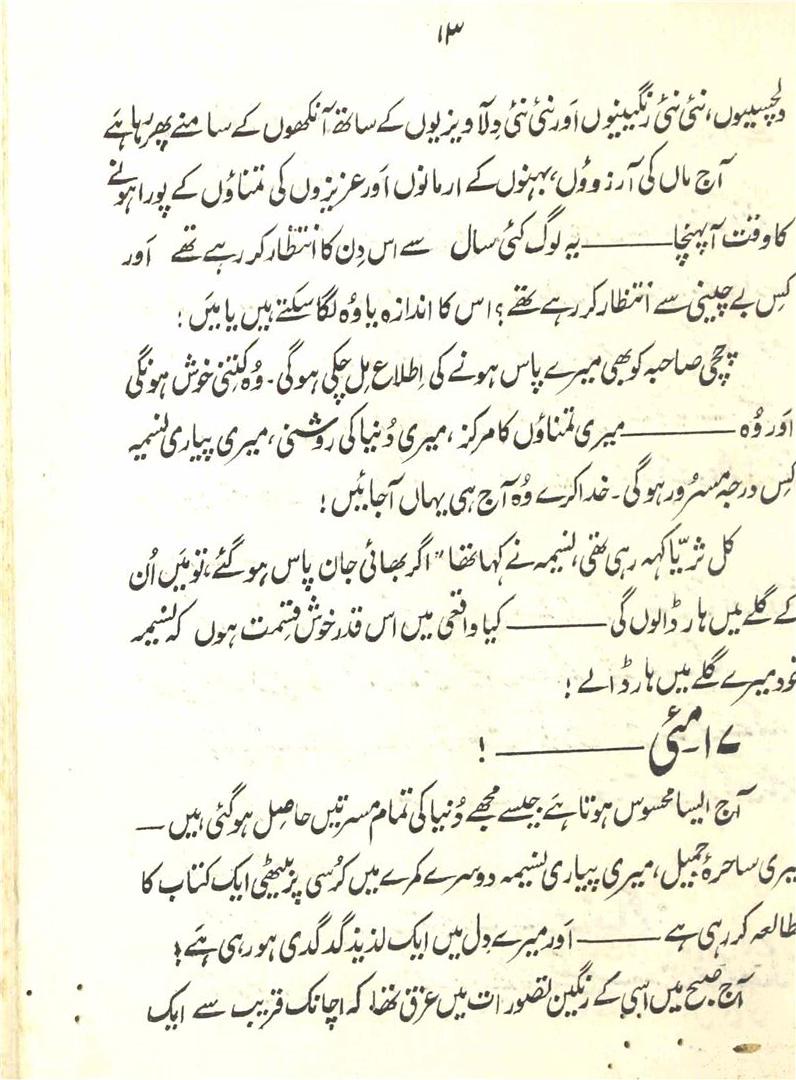 ۱۳
دلچسپیوں، نئی نئی رنگینیوں اَور نئی نئی دِلآویزیوں کے ساتھ آنکھوں کے سامنے پھر رہا ہَے
آج ماں کی آرزووُں، بہنوں کے ارمانوں اَور عزیزوں کی تمنّاؤں کے پورا ہونے
کا وقت آ پہنچا ——— یہ لوگ کئی سال سے اس دِن کا انتظار کر رہے تھے اَور
کِس بے چینی سے انتظار کر رہے تھے؟ اس کا اندازہ یا وُہ لگا سکتے ہیں یا میَں!
چچی صاحبہ کو بھی میرے پاس ہونے کی اِطلاع مِل چکی ہوگی۔ وُہ کِتنی خوش ہونگی
اَور وُہ ——— میری تمنّاؤں کا مرکز، میری دُنیا کی روشنی، میری پیاری نسیمہ
کِس درجہ مسرُور ہوگی۔ خدا کرے وُہ آج ہی یہاں آ جائیں!
کل ثریّا کہہ رہی تھی، نسیمہ نے کہا تھا "اگر بھائی جان پاس ہو گئے، تو میَں اُن
کے گلے میں ہار ڈالوں گی ——— کیا واقعی میں اس قدر خوش قِسمت ہوں کہ نسیمہ
خود میرے گلے میں ہار ڈالے!
۱۷ مئی ——— !
آج ایسا محسوس ہوتا ہَے جیسے مجھے دُنیا کی تمام مسرتیں حاصِل ہو گئی ہیں —
میری ساحرۂ جمیل، میری پیاری نسیمہ دوسرے کمرے میں کُرسی پر بیٹھی ایک کتاب کا
مطالعہ کر رہی ہے ——— اَور میرے دِل میں ایک لذیذ گدگدی ہو رہی ہَے!
آج صبح میں اسی کے رنگین تصورات میں غرق تھا، کہ اچانک قریب سے ایک